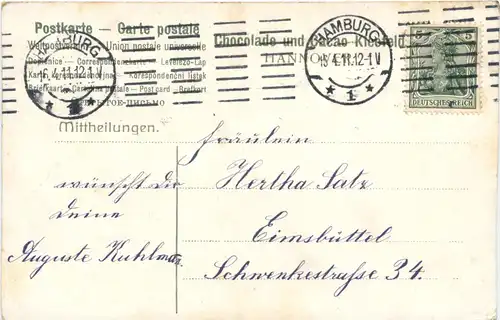 Postkarte — Carte postale
Weltpostverein — Union postale universelle
Dopisnice — Correspondenzkarte — Levelezö-Lap
Karta korespondencyjna — Korespondencni listek
Briefkarte — Cartolina postale — Post card — Brefkort
ОТКРЫТОЕ ПИСЬМО
Chocolade und Cacao
HANNOVER
HAMBURG
16.4.11.12-1V
* 1 *
HAMBURG
16.4.11.12-1V
* 1 *
5 5
DEUTSCHES REICH
Mittheilungen.
Fräulein
Hertha Satz
Eimsbüttel
Schwenkestrasse 34.
wünscht dir
Deine
Auguste Kuhlman